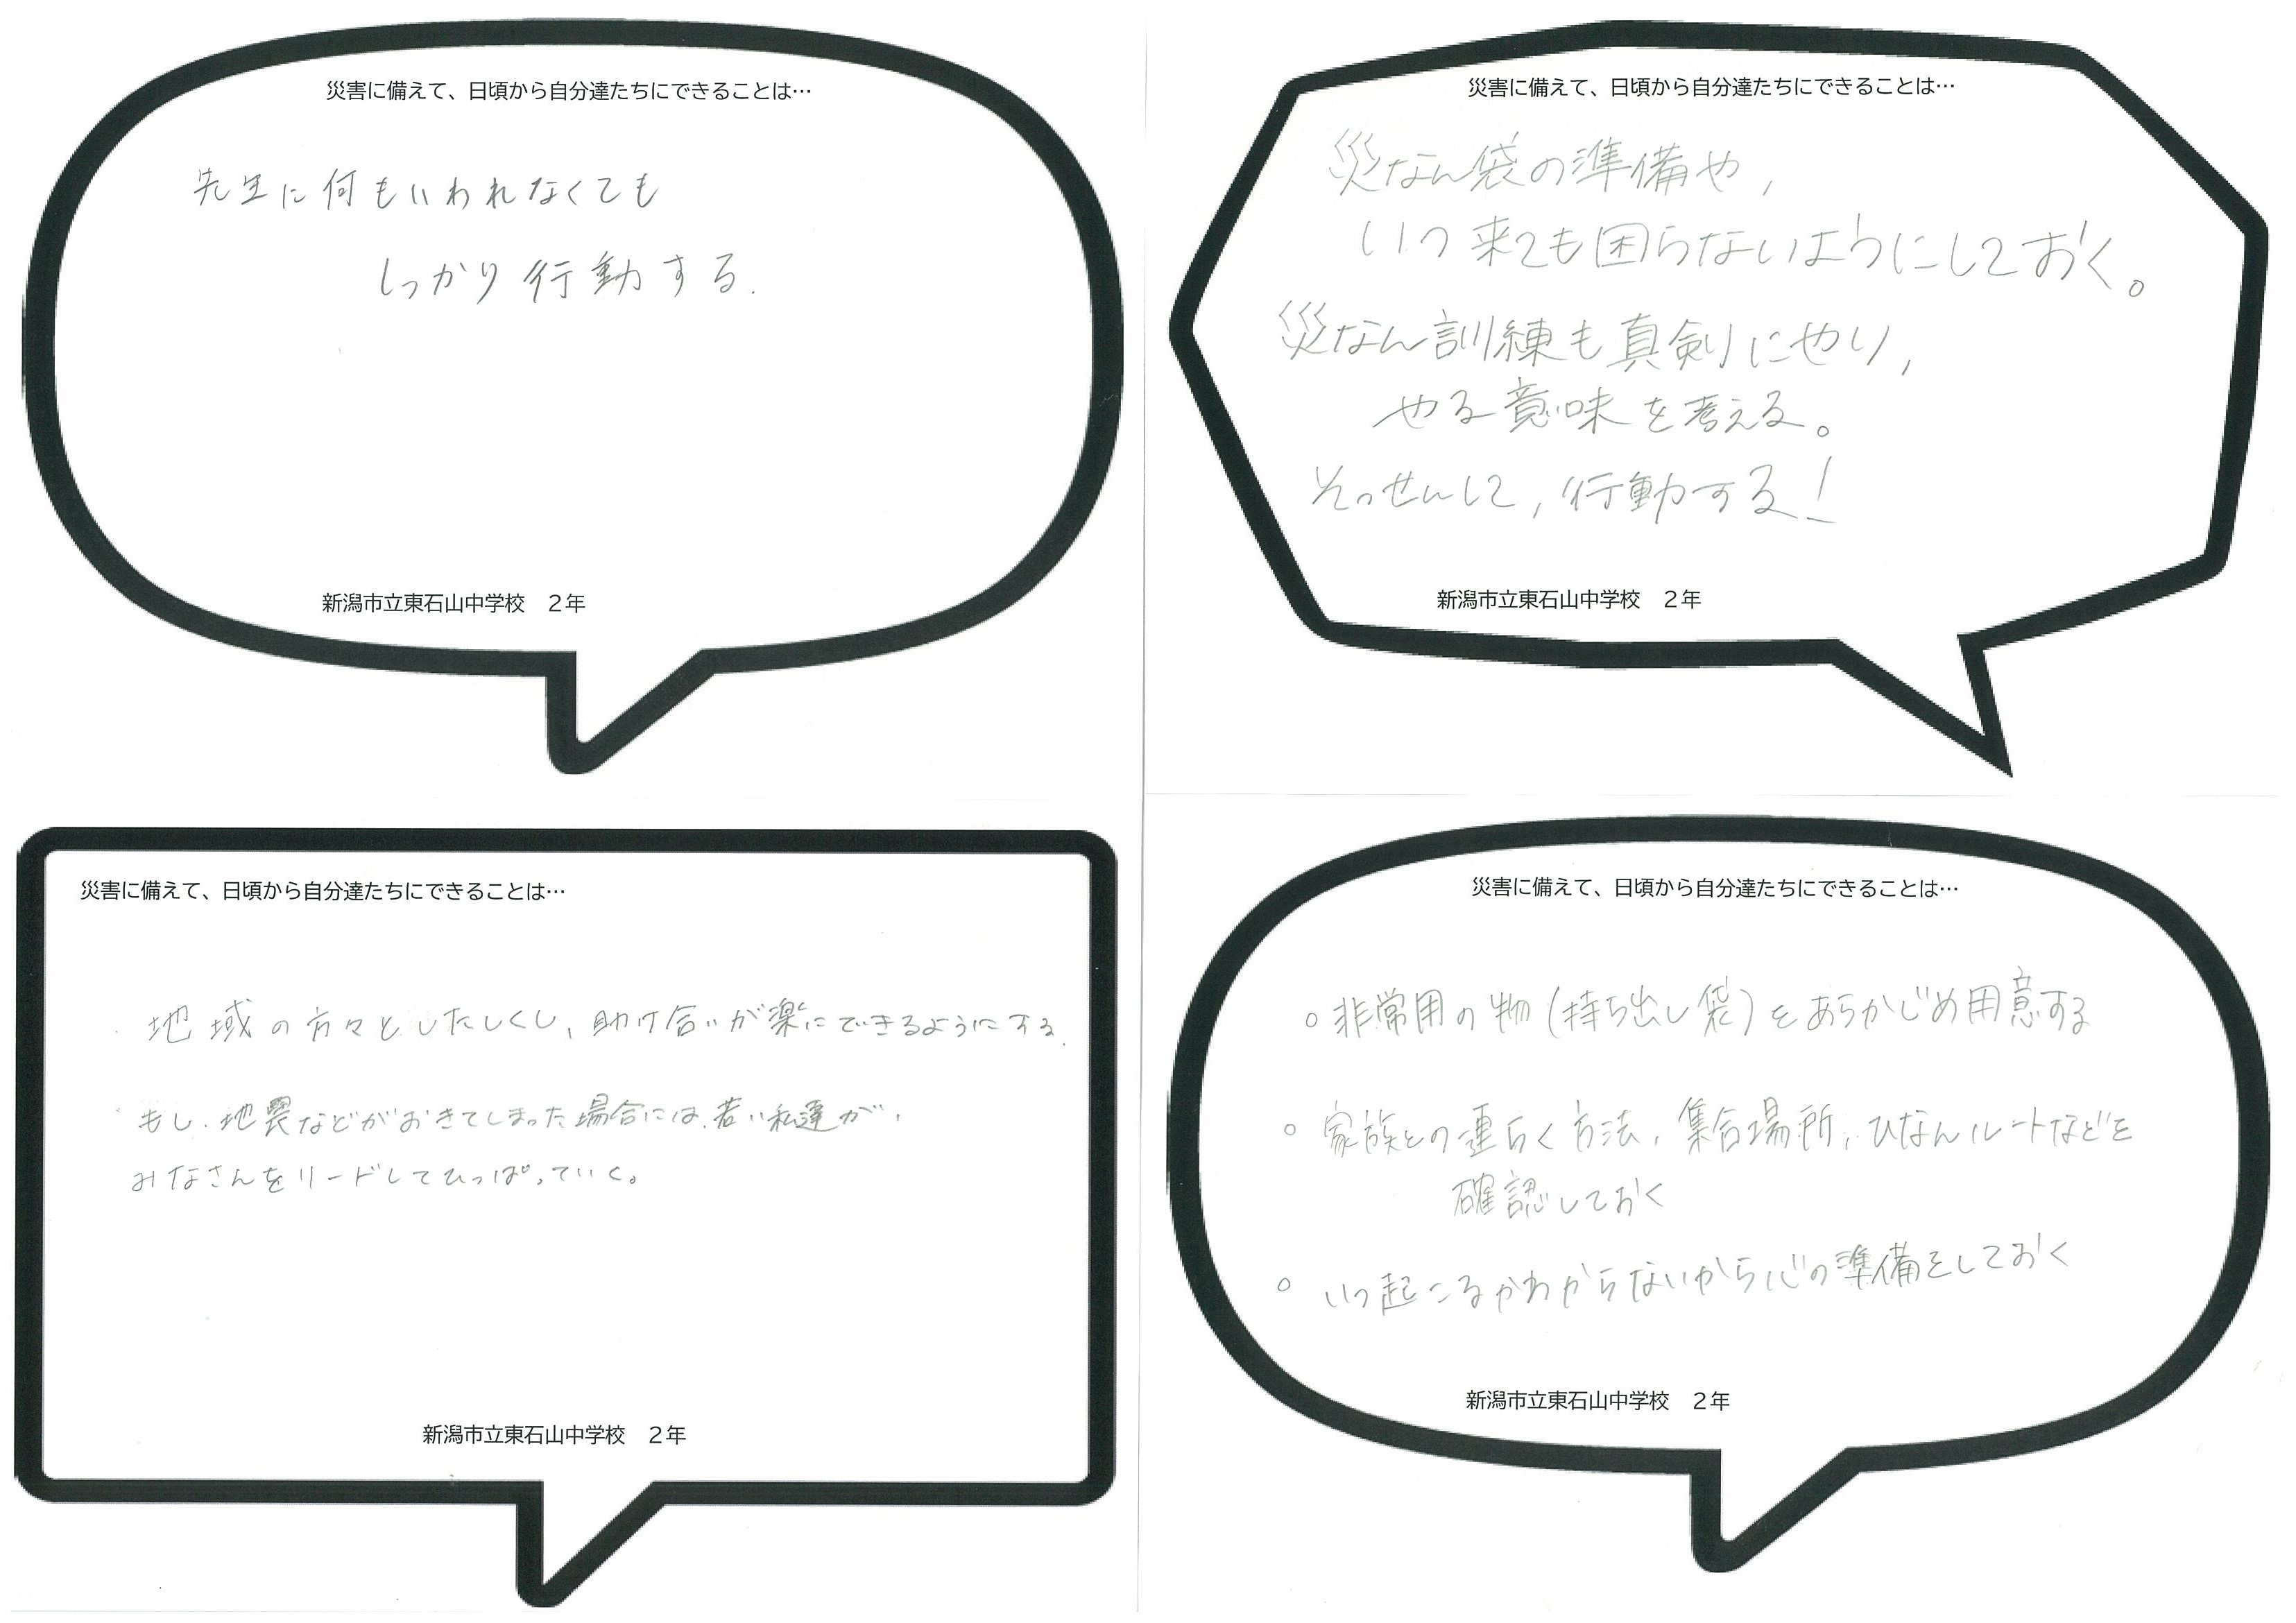 災害に備えて、日頃から自分達たちにできることは…
先生に何もいわれなくても
しっかり行動する.
新潟市立東石山中学校　２年
災害に備えて、日頃から自分達たちにできることは…
災なん袋の準備や,
いつ来ても困らないようにしておく。
災なん訓練も真剣にやり,
やる意味を考える。
そっせんして,行動する!
新潟市立東石山中学校　２年
災害に備えて、日頃から自分達たちにできることは…
・地域の方々としたしくし、助け合いが楽にできるようにする.
・もし、地震などがおきてしまった場合には、若い私達が、
みなさんをリードしてひっぱっていく。
新潟市立東石山中学校　２年
災害に備えて、日頃から自分達たちにできることは…
○非常用の物(持ち出し袋)をあらかじめ用意する
○家族との連らく方法,集合場所,ひなんルートなどを
確認しておく
○いつ起こるかわからないから心の準備をしておく
新潟市立東石山中学校　２年